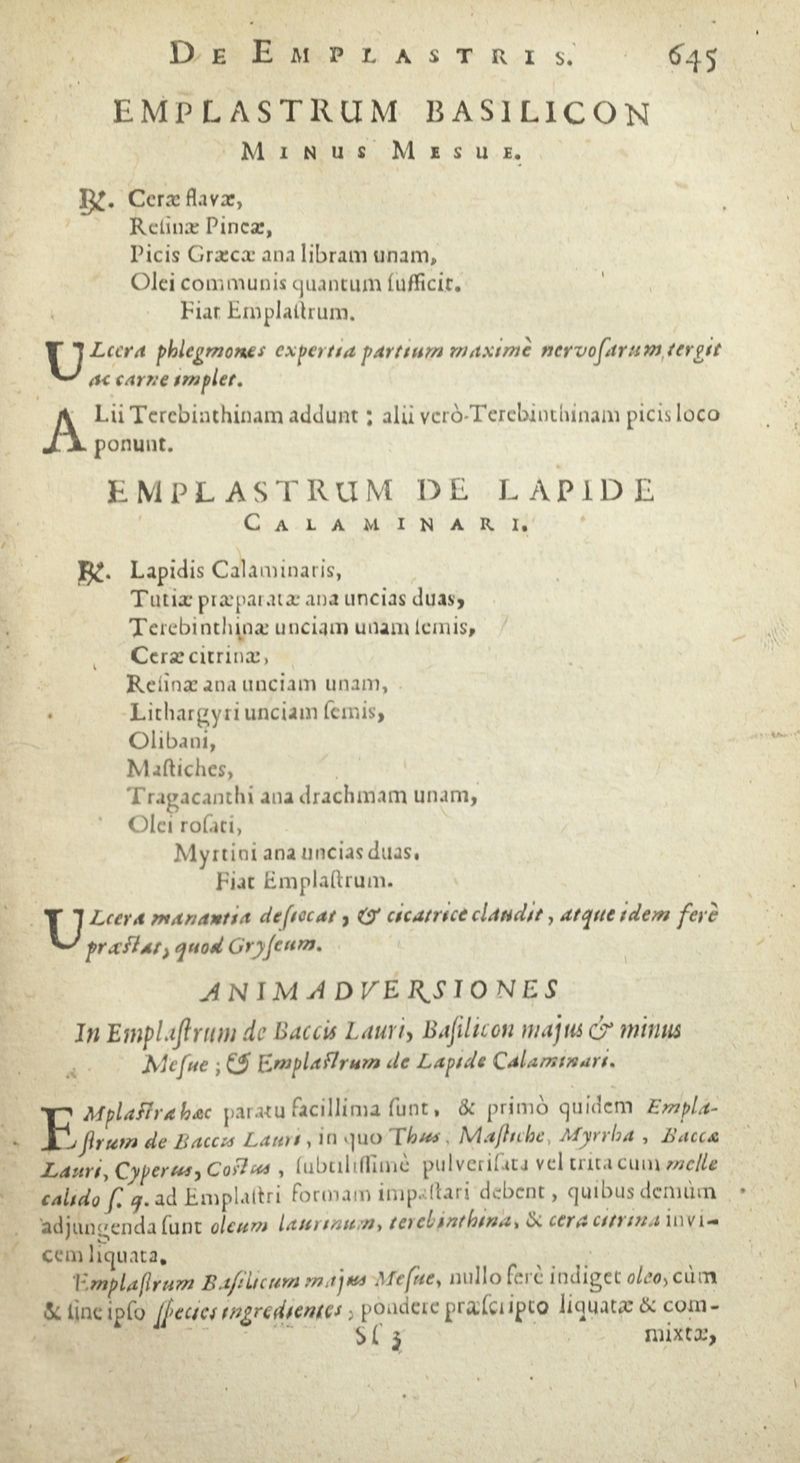 DE EMPLASTRIS. 645
EMPLASTRUM BASILICON
MINUS MESUE.
℞. Ceræ flavæ,
Reſinæ Pineæ,
Picis Græcæ ana libram unam,
Olei communis quantum ſufficit.
Fiat Emplaſtrum.
ULcera phlegmones expertia partium maximè nervoſarum tergit
ac carne implet.
ALii Terebinthinam addunt; alii verò Terebinthinam picis loco
ponunt.
EMPLASTRUM DE LAPIDE
CALAMINARI.
℞. Lapidis Calaminaris,
Tutiæ præparatæ ana uncias duas,
Terebinthinæ unciam unam ſemis,
Ceræ citrinæ,
Reſinæ ana unciam unam,
Lithargyri unciam ſemis,
Olibani,
Maſtiches,
Tragacanthi ana drachmam unam,
Olei roſati,
Myrtini ana uncias duas.
Fiat Emplaſtrum.
ULcera manantia deſiccat, & cicatrice claudit, atque idem ferè
præſtat, quod Gryſeum.
ANIMADVERSIONES
In Emplaſtrum de Baccis Lauri, Baſilicon majus & minus
Meſue; & Emplaſtrum de Lapide Calaminari.
EMplaſtra hæc paratu facillima ſunt, & primò quidem Empla-
ſtrum de Baccis Lauri, in quo Thus, Maſtiche, Myrrha, Baccæ
Lauri, Cyperus, Coſtus, ſubtiliſſimè pulveriſata vel trita cum melle
calido ſ. q. ad Emplaſtri formam impaſtari debent, quibus demùm
adjungenda ſunt oleum laurinum, terebinthina, & cera citrina invi-
cem liquata.
Emplaſtrum Baſilicum majus Meſue, nullo ferè indiget oleo, cùm
& ſine ipſo ſpecies ingredientes, pondere præſcripto liquatæ & com-
Sſ 3 mixtæ,